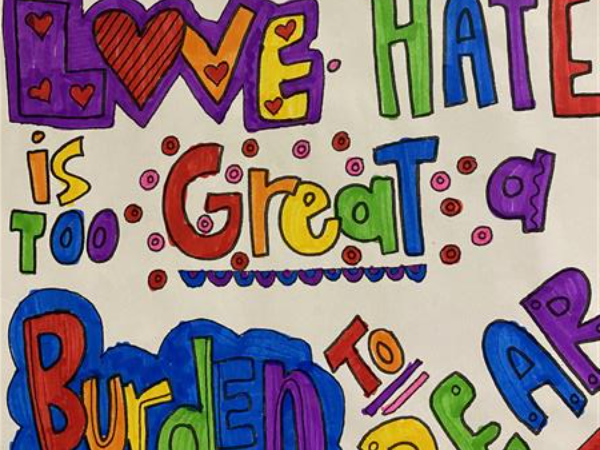 LOVE. HATE
is
TOO Great a
Burden TO BEAR